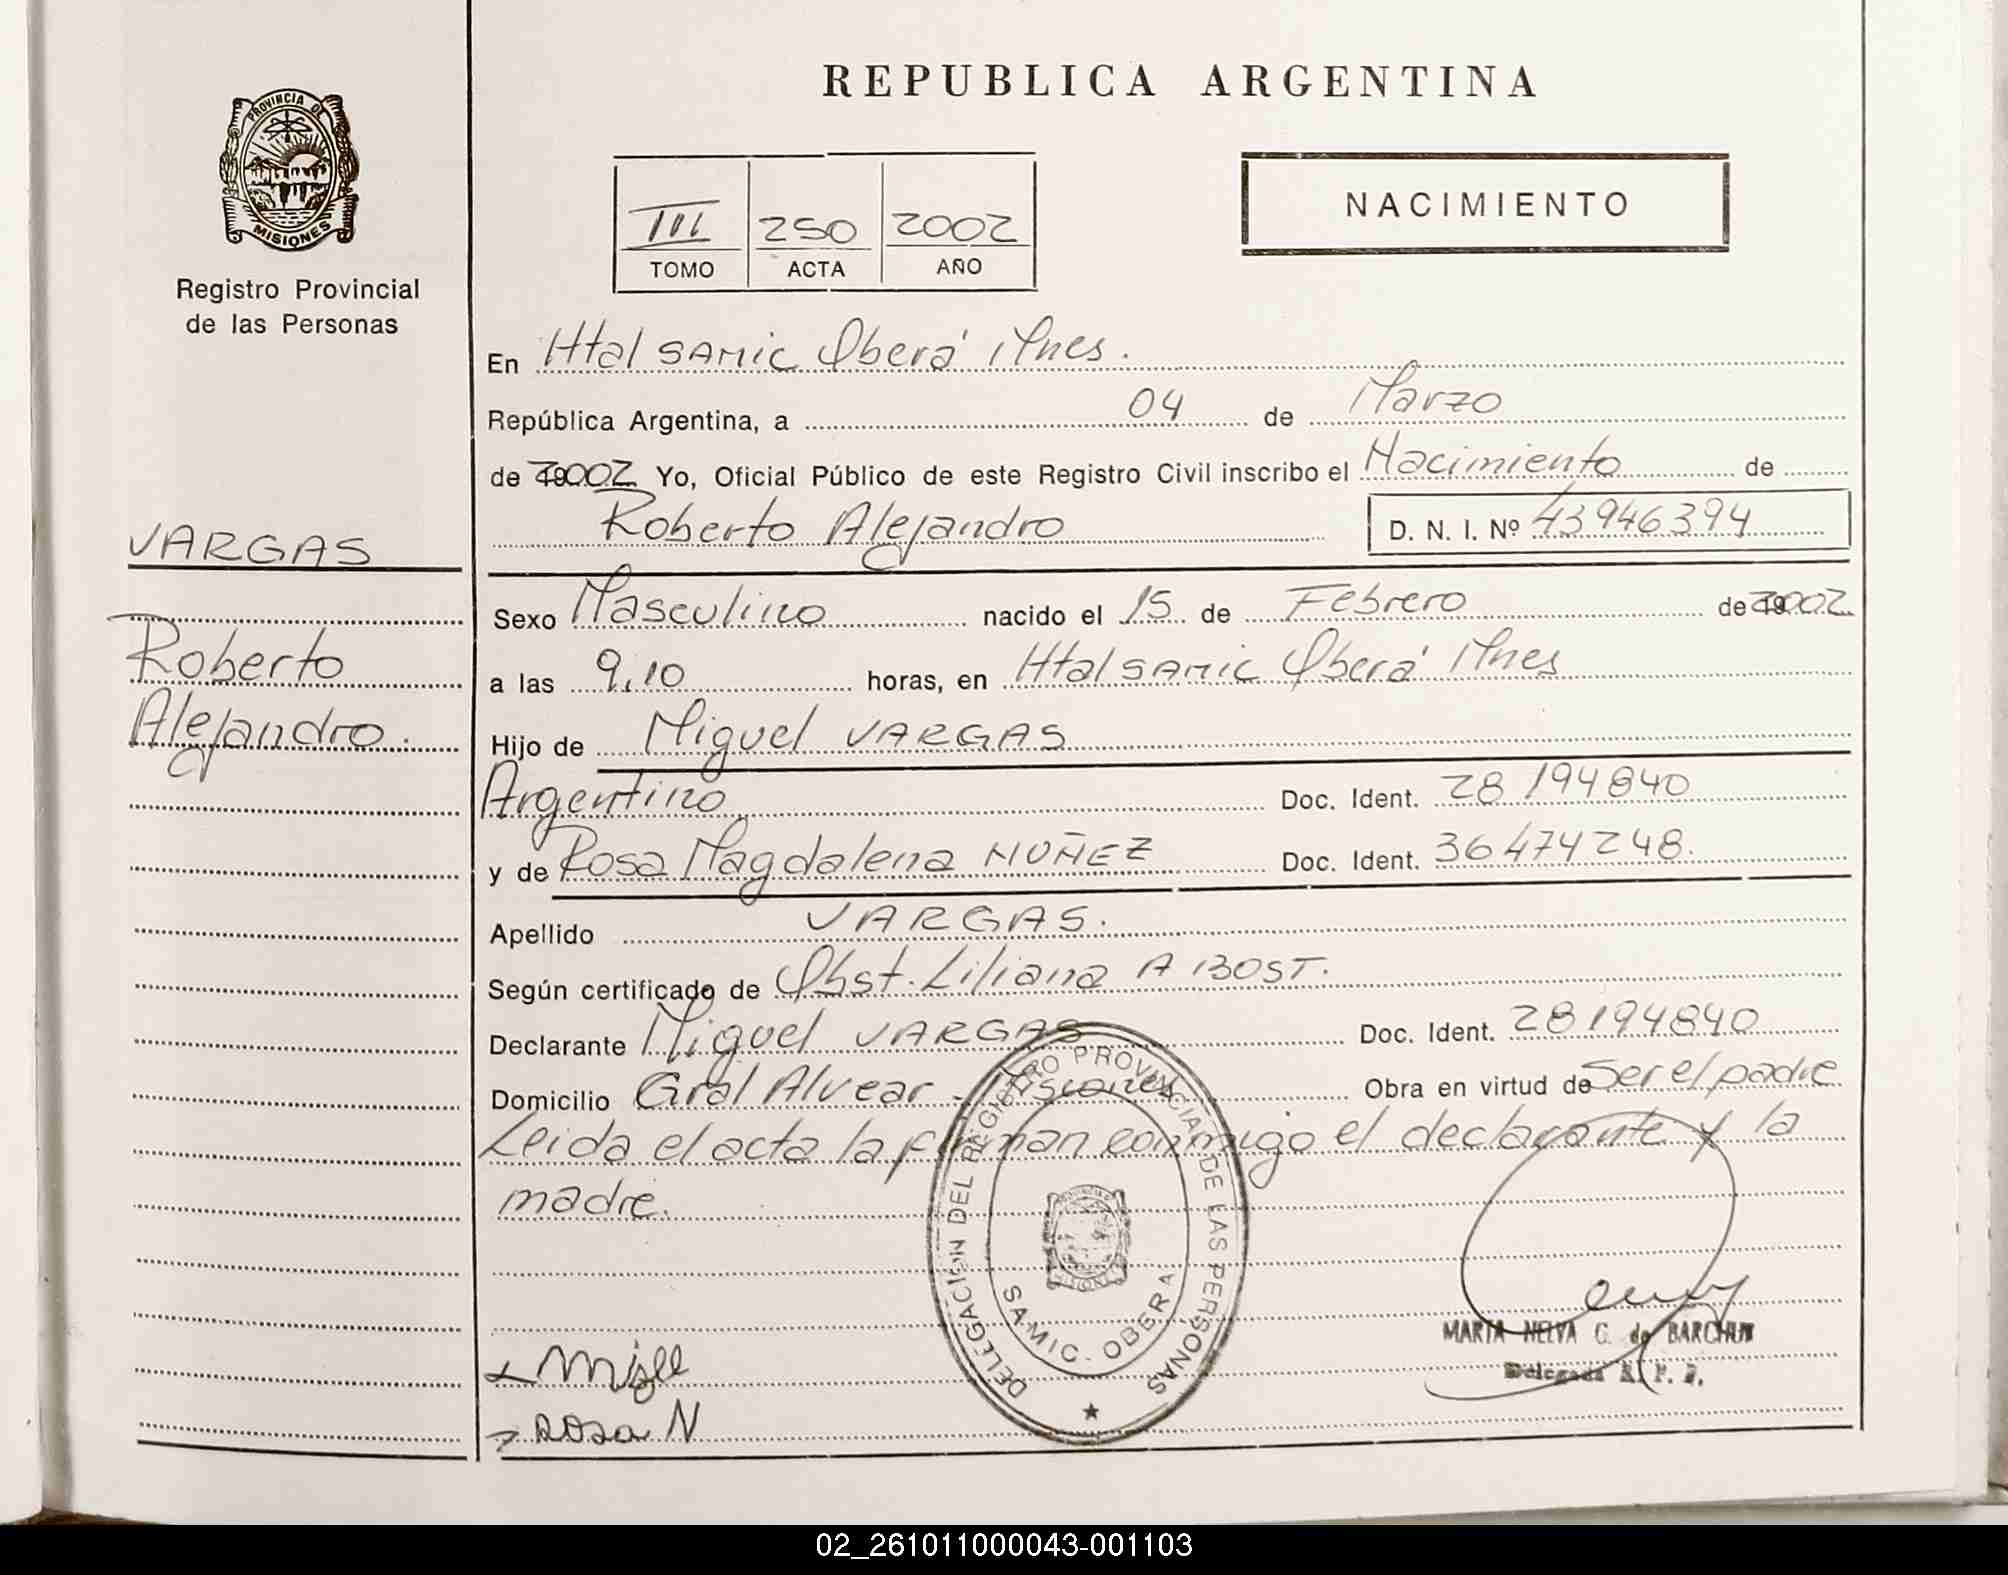 REPUBLICA ARGENTINA
PROVINCIA DE MISIONES
Registro Provincial
de las Personas
III 250 2002
TOMO ACTA AÑO
NACIMIENTO
En Htal SAMIC Oberá Mnes.
República Argentina, a 04 de Marzo
de 2002 Yo, Oficial Público de este Registro Civil inscribo el Nacimiento de
Roberto Alejandro D. N. I. Nº 43946394
VARGAS
Roberto
Alejandro.
Sexo Masculino nacido el 15 de Febrero de 2002
a las 9,10 horas, en Htal SAMIC Oberá Mnes
Hijo de Miguel VARGAS
Argentino Doc. Ident. 28194840
y de Rosa Magdalena NUÑEZ Doc. Ident. 36474248.
Apellido VARGAS.
Según certificado de Obst. Liliana A BOST.
Declarante Miguel VARGAS Doc. Ident. 28194840
Domicilio Gral Alvear - Misiones Obra en virtud de Ser el padre
Leida el acta la firman conmigo el declarante y la
madre.
DELEGACION DEL REGISTRO PROVINCIAL DE LAS PERSONAS
SAMIC - OBERA
MARIA NELVA C. de BARCHUK
Delegada R. P. P.
Rosa N
02_261011000043-001103